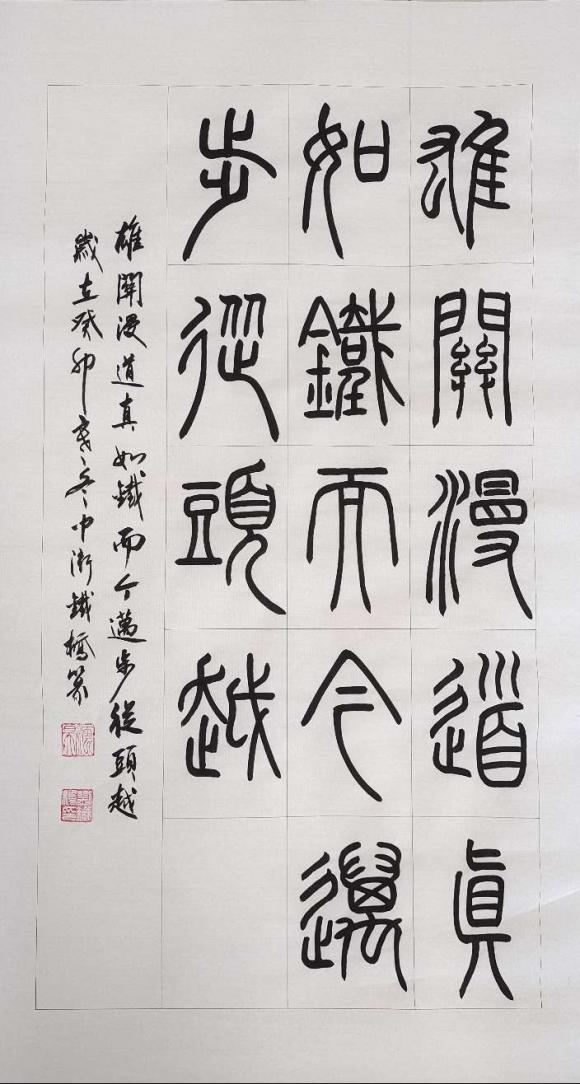 雄關漫道真
如鐵而今邁
步從頭越
雄關漫道真如鐵而今邁步從頭越
歲在癸卯冬中衛鐵橋篆